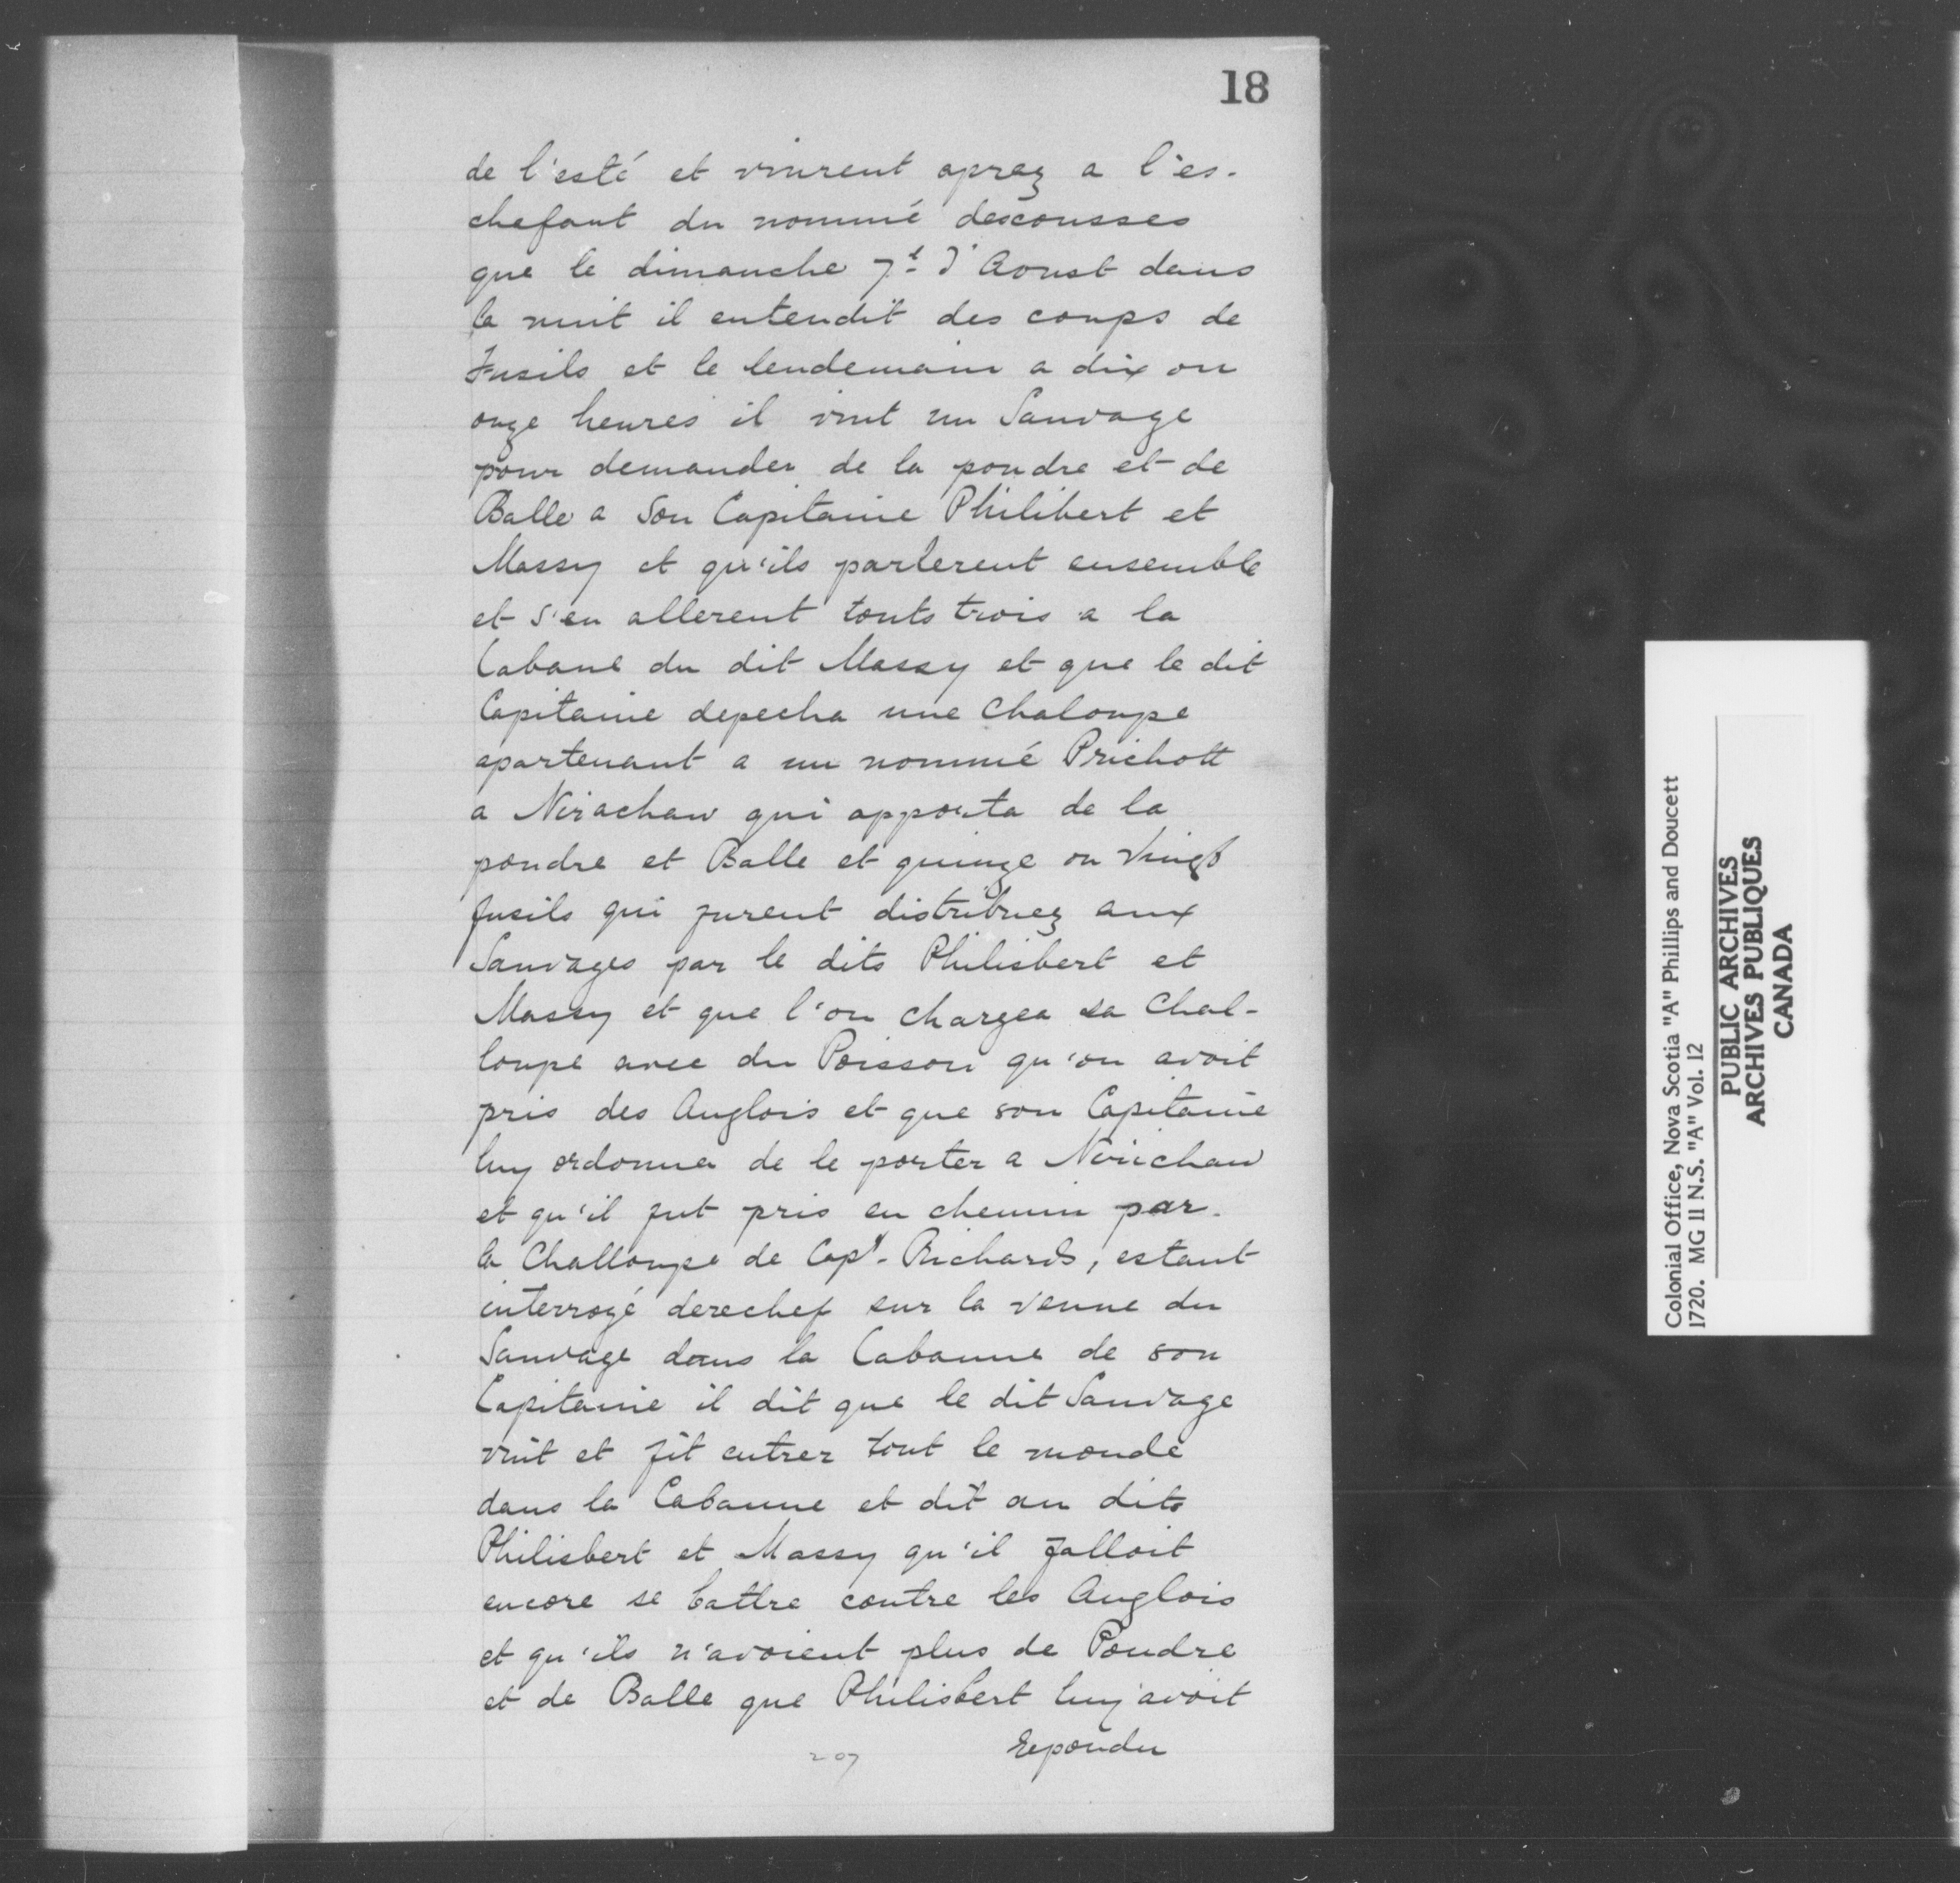 18
de l'esté et vinrent aprez a l'es-
chefaut du nommé descousses
que le dimanche 7t d'Aoust dans
la nuit il entendit des coups de
Fusils et le lendemain a dix ou
onze heures il vint un Sauvage
pour demander de la poudre et de
Balle a Son Capitaine Philibert et
Massy et qu'ils parlerent ensemble
et s'en allerent touts trois a la
Cabane du dit Massy et que le dit
Capitaine depecha une Chaloupe
apartenant a un nommé Prichott
a Nirachaw qui apporta de la
poudre et Balle et quinze ou Vingt
fusils qui furent distribuez aux
Sauvages par le dits Philisbert et
Massy et que l'on chargea sa Chal-
loupe avec du Poisson qu'on avoit
pris des Anglois et que son Capitaine
luy ordonna de le porter a Nirichaw
et qu'il fut pris en chemin par
la Challoupe de Capt. Richards, estant
interrogé derechef sur la venue du
Sauvage dans la Cabanne de son
Capitaine il dit que le dit Sauvage
vint et fit entrer tout le monde
dans la Cabanne et dit au dits
Philisbert et Massy qu'il falloit
encore se battre contre les Anglois
et qu'ils n'avoient plus de Poudre
et de Balle que Philisbert luy avoit
Repondu
207
Colonial Office, Nova Scotia "A" Phillips and Doucett
1720. MG 11 N.S. "A" Vol. 12
PUBLIC ARCHIVES
ARCHIVES PUBLIQUES
CANADA